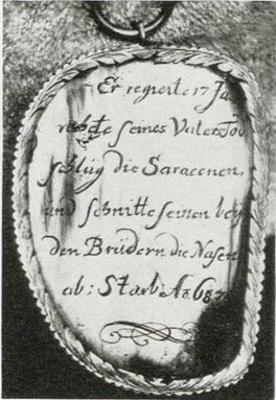 Er regierte 17 Ja
rechte seines Vaters Tod
schlug die Saracenen,
und schnitte seinen bey
den Brüdern die Nasen
ab: Starb Ao. 687